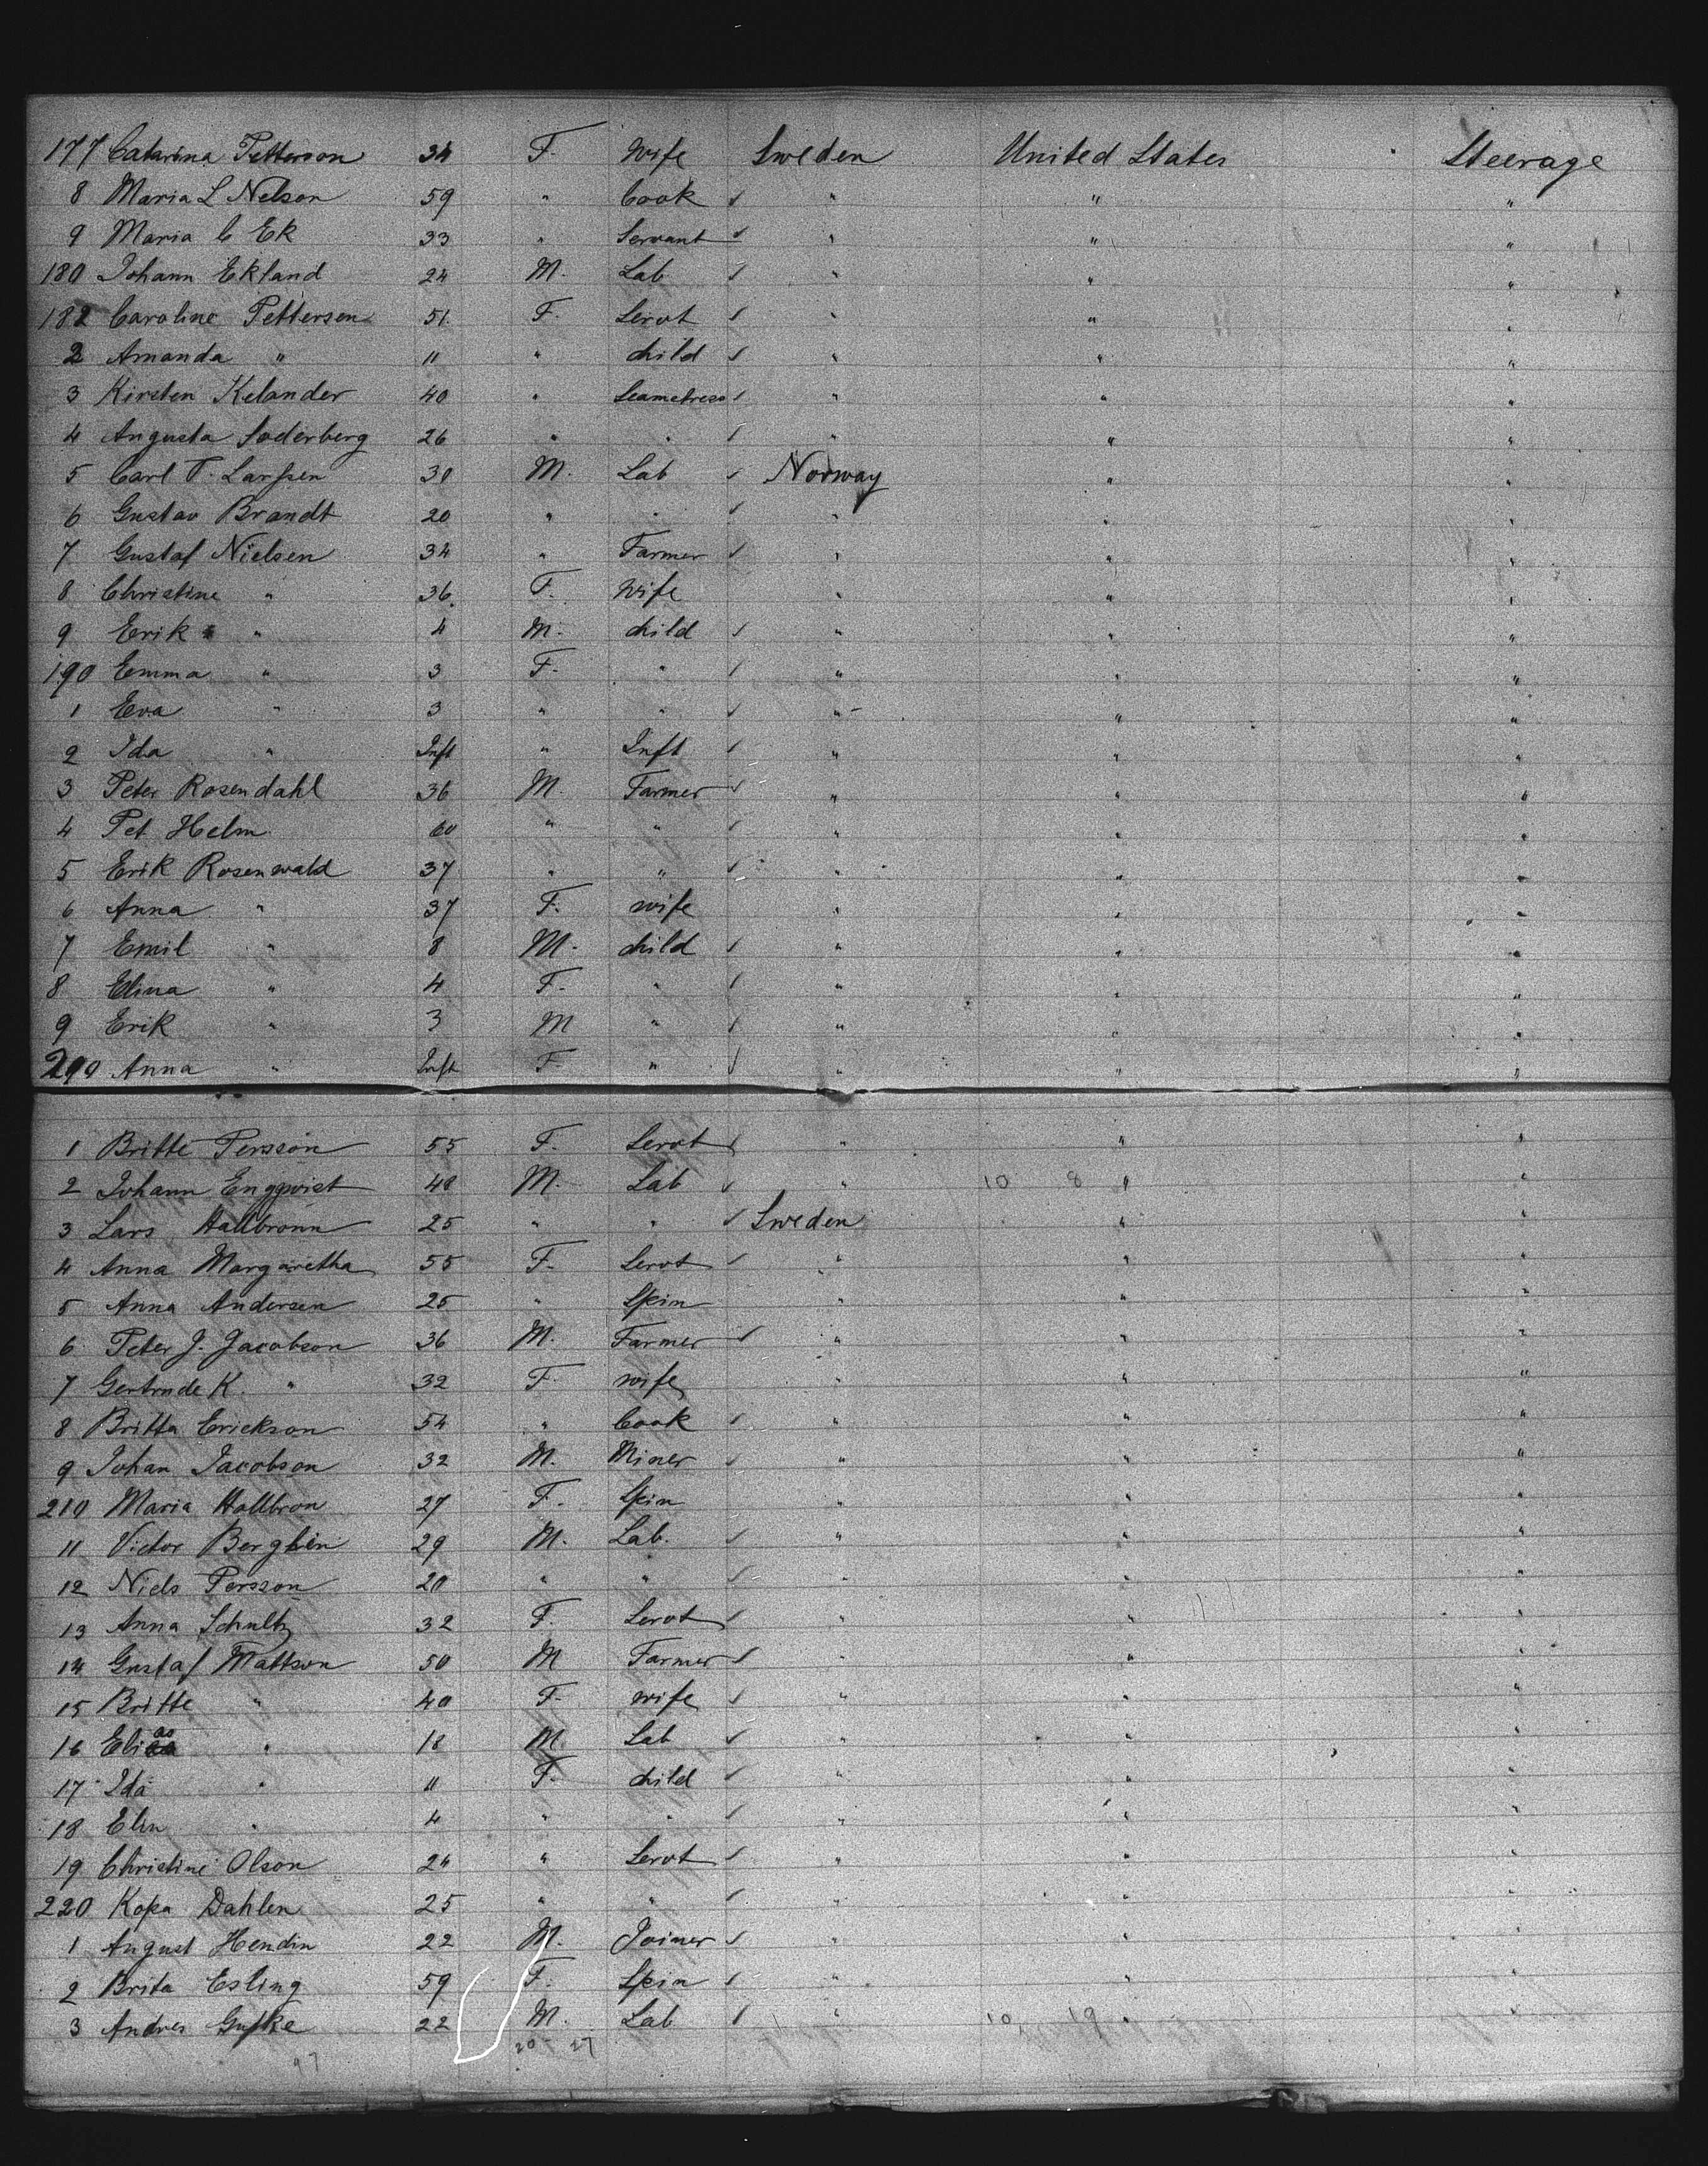 177 Catarina Petterson 34 F. Wife Sweden United States Steerage
8 Maria L Nelson 59 " Cook ✓ " " "
9 Maria C Ek 33 " Servant ✓ " " "
180 Johann Ekland 24 M. Lab ✓ " " "
182 Caroline Pettersen 51. F. Servt ✓ " " "
2 Amanda " 11 " child ✓ " " "
3 Kirsten Kelander 40 " Seamstress ✓ " " "
4 Augusta Soderberg 26 " " ✓ " " "
5 Carl F. Larssen 30 M. Lab ✓ Norway " "
6 Gustav Brandt 20 " " ✓ " " "
7 Gustaf Nielsen 34 " Farmer ✓ " " "
8 Christine " 36 F. Wife " " "
9 Erik " 4 M. child ✓ " " "
190 Emma " 3 F. " ✓ " " "
1 Eva " 3 " " ✓ " " "
2 Ida " Inft " Inft ✓ " " "
3 Peter Rosendahl 36 M. Farmer ✓ " " "
4 Pet Helm 60 " " ✓ " " "
5 Erik Rosenwald 37 " " ✓ " " "
6 Anna " 37 F. wife " " "
7 Emil " 8 M. child ✓ " " "
8 Elina " 4 F. " ✓ " " "
9 Erik " 3 M " ✓ " " "
200 Anna " Inft F. " ✓ " " "
1 Britte Persson 55 F. Servt ✓ " " "
2 Johann Engqvist 48 M. Lab ✓ " 10 8 " "
3 Lars Hallbronn 25 " " ✓ Sweden " "
4 Anna Margaretha 55 F. Servt ✓ " " "
5 Anna Andersen 25 " Spin " " "
6 Peter J. Jacobson 36 M. Farmer ✓ " " "
7 Gertrude K. " 32 F. wife " " "
8 Britta Erickson 54 " Cook ✓ " " "
9 Johan Jacobson 32 M. Miner ✓ " " "
210 Maria Hallbron 27 F. Spin " " "
11 Victor Berglin 29 M. Lab. ✓ " " "
12 Niels Persson 20 " " ✓ " " "
13 Anna Schultz 32 F. Servt ✓ " " "
14 Gustaf Mattson 50 M Farmer ✓ " " "
15 Britte " 40 F. wife ✓ " " "
16 Elias " 18 M. Lab ✓ " " "
17 Ida " 11 F. child ✓ " " "
18 Elin " 4 " " ✓ " " "
19 Christine Olson 24 " Servt ✓ " " "
220 Kopa Dahlen 25 " " ✓ " " "
1 August Hendin 22 M. Joiner ✓ " " "
2 Brita Esling 59 F. Spin ✓ " " "
3 Andres 22 M. Lab ✓ " 10 19 " "
97 20 27